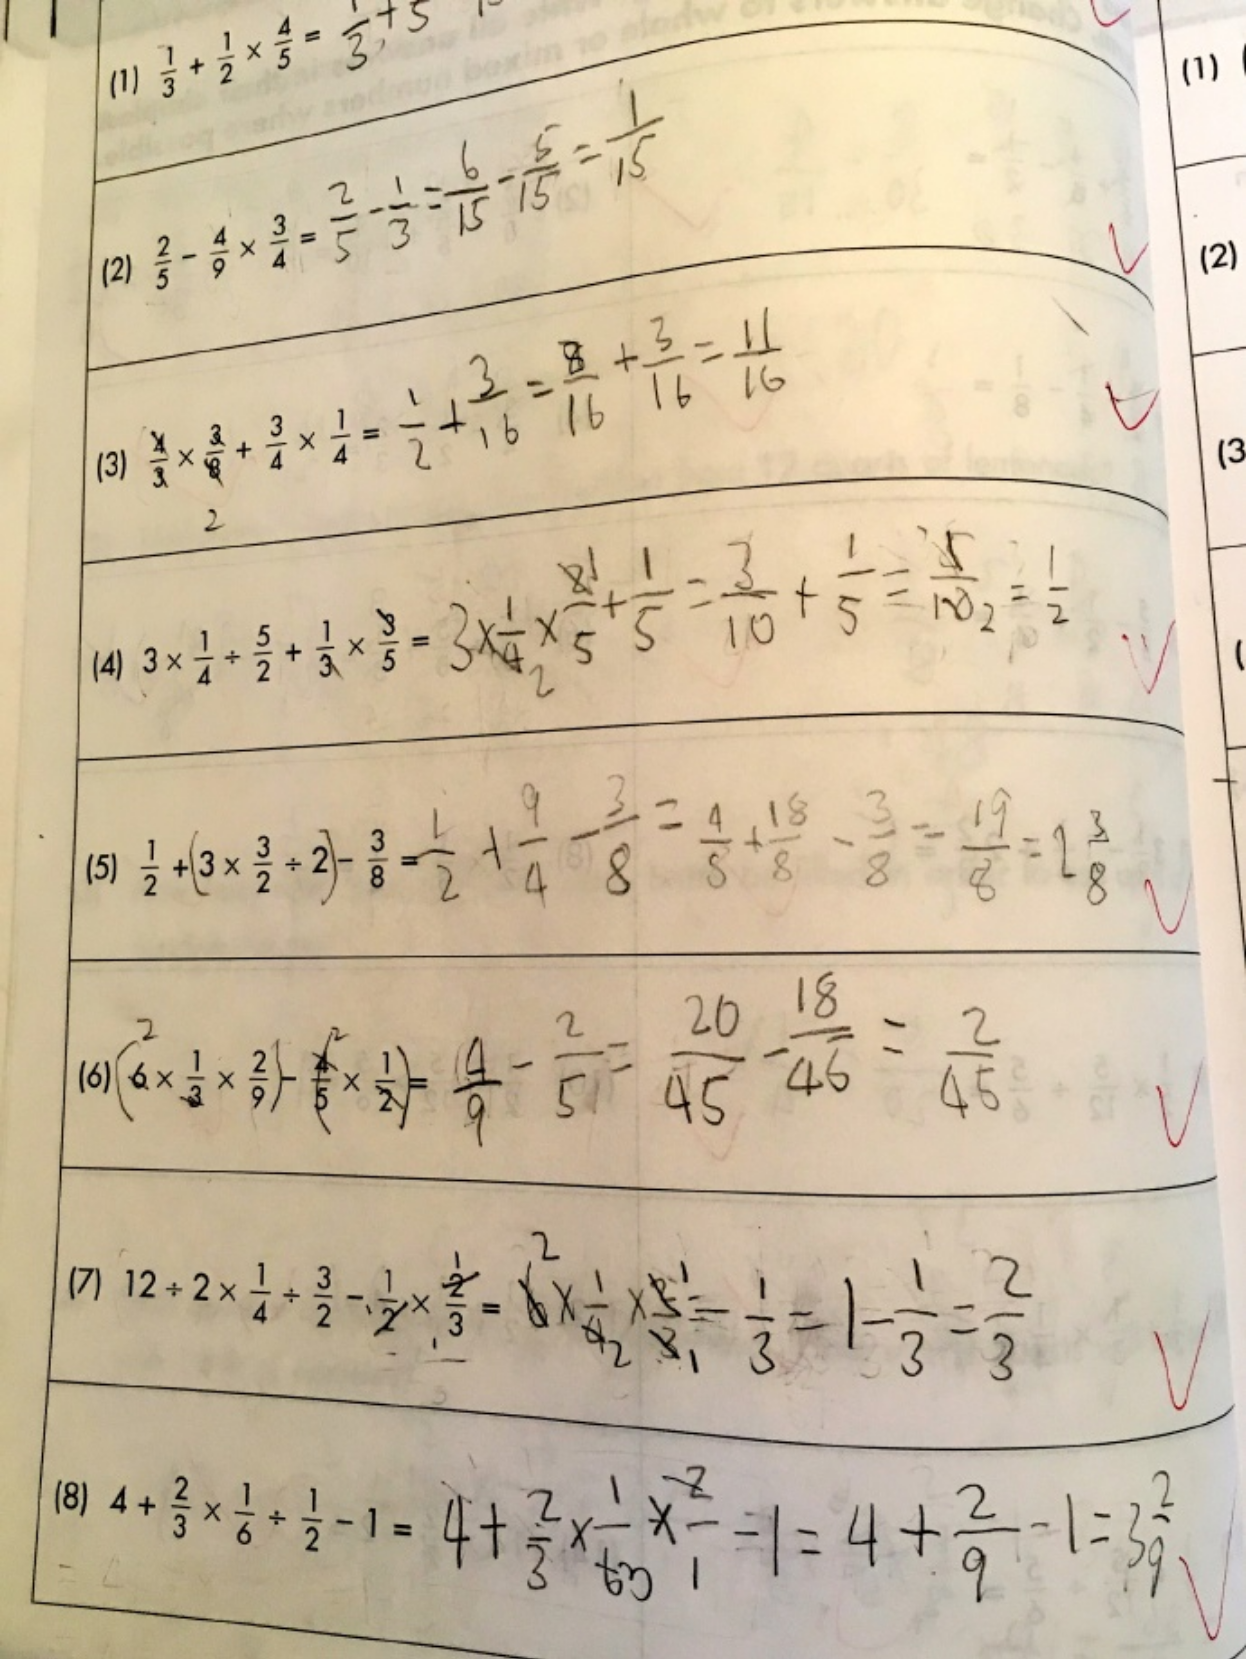 (1) 1/3 + 1/2 × 4/5 = 1/3 + 5
(2) 2/5 − 4/9 × 3/4 = 2/5 − 1/3 = 6/15 − 5/15 = 1/15
(3) 4/3 × 3/8 + 3/4 × 1/4 = 1/2 + 3/16 = 8/16 + 3/16 = 11/16
2
(4) 3 × 1/4 ÷ 5/2 + 1/3 × 3/5 = 3 × 1/4 2 × 2 1/5 + 1/5 = 3/10 + 1/5 = 5/10 2 = 1/2
(5) 1/2 + (3 × 3/2 ÷ 2) − 3/8 = 1/2 + 9/4 − 3/8 = 4/8 + 18/8 − 3/8 = 19/8 = 2 3/8
2 2
(6) (6 × 1/3 × 2/9) − (4/5 × 1/2) = 4/9 − 2/5 = 20/45 − 18/46 = 2/45
(7) 12 ÷ 2 × 1/4 ÷ 3/2 − 1/2 × 2/3 = 6 2 × 1/4 2 × 1/3 1 − 1/3 = 1 − 1/3 = 2/3
(8) 4 + 2/3 × 1/6 ÷ 1/2 − 1 = 4 + 2/3 × 1/6 3 × 2/1 − 1 = 4 + 2/9 − 1 = 3 2/9
(1)
(2)
(3
(